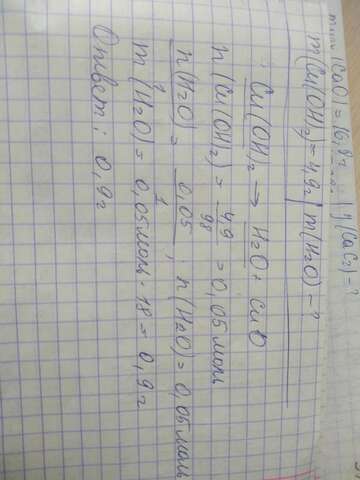 m(CaO) = 16,8г η(CaC₂) = ?
m(Cu(OH)₂ = 4,9г | m(H₂O) - ?
Cu(OH)₂ → H₂O + CuO
n(Cu(OH)₂) = 4,9/98 = 0,05 моль
n(H₂O) = 0,05/1 ; n(H₂O) = 0,05 моль
m(H₂O) = 0,05 моль · 18 = 0,9 г
Ответ: 0,9г